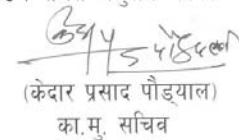 (केदार प्रसाद पौड्याल)
का.मु. सचिव